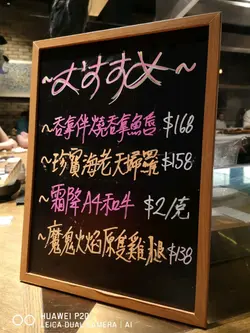 ~おすすめ~
~吞拿伴燒吞拿魚唇 $168
~珍寶海老天婦羅 $158
~霜降A4和牛 $2/克
~魔鬼火焰原隻雞腿 $138
HUAWEI P20
LEICA DUAL CAMERA | AI